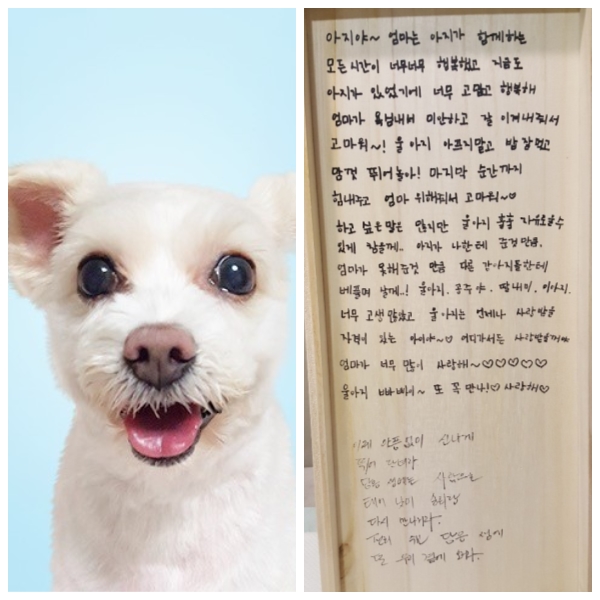 아지야~ 엄마는 아지가 함께하는
모든시간이 너무너무 행복했고 지금도
아지가 있었기에 너무 고맙고 행복해
엄마가 욕심내서 미안하고 잘 이겨내줘서
고마워~! 울아지 아프지말고 밥잘먹고
맘껏 뛰어놀아! 마지막 순간까지
힘내주고 엄마 위해줘서 고마워~♡
하고싶은말은 많지만 울아지 훌훌 자유로울수
있게 참을께.. 아지가 나한테 준것만큼,
엄마가 못해준것 만큼 다른 강아지들한테
베풀며 살게..! 울아지. 공주야. 딸내미. 이아지.
너무 고생많았고 울아지는 언제나 사랑받을
자격이 있는 아이야~♡ 어디가서든 사랑받을꺼야
엄마가 너무 많이 사랑해~♡♡♡♡♡
울아지 빠빠이~ 또 꼭 만나!♡ 사랑해♡
이제 아픔없이 신나게
뛰어 다니다
다음 생에는 사람으로
태어나서 우리랑
다시 만나자.
다음 생에
또 우리 곁에 와라.